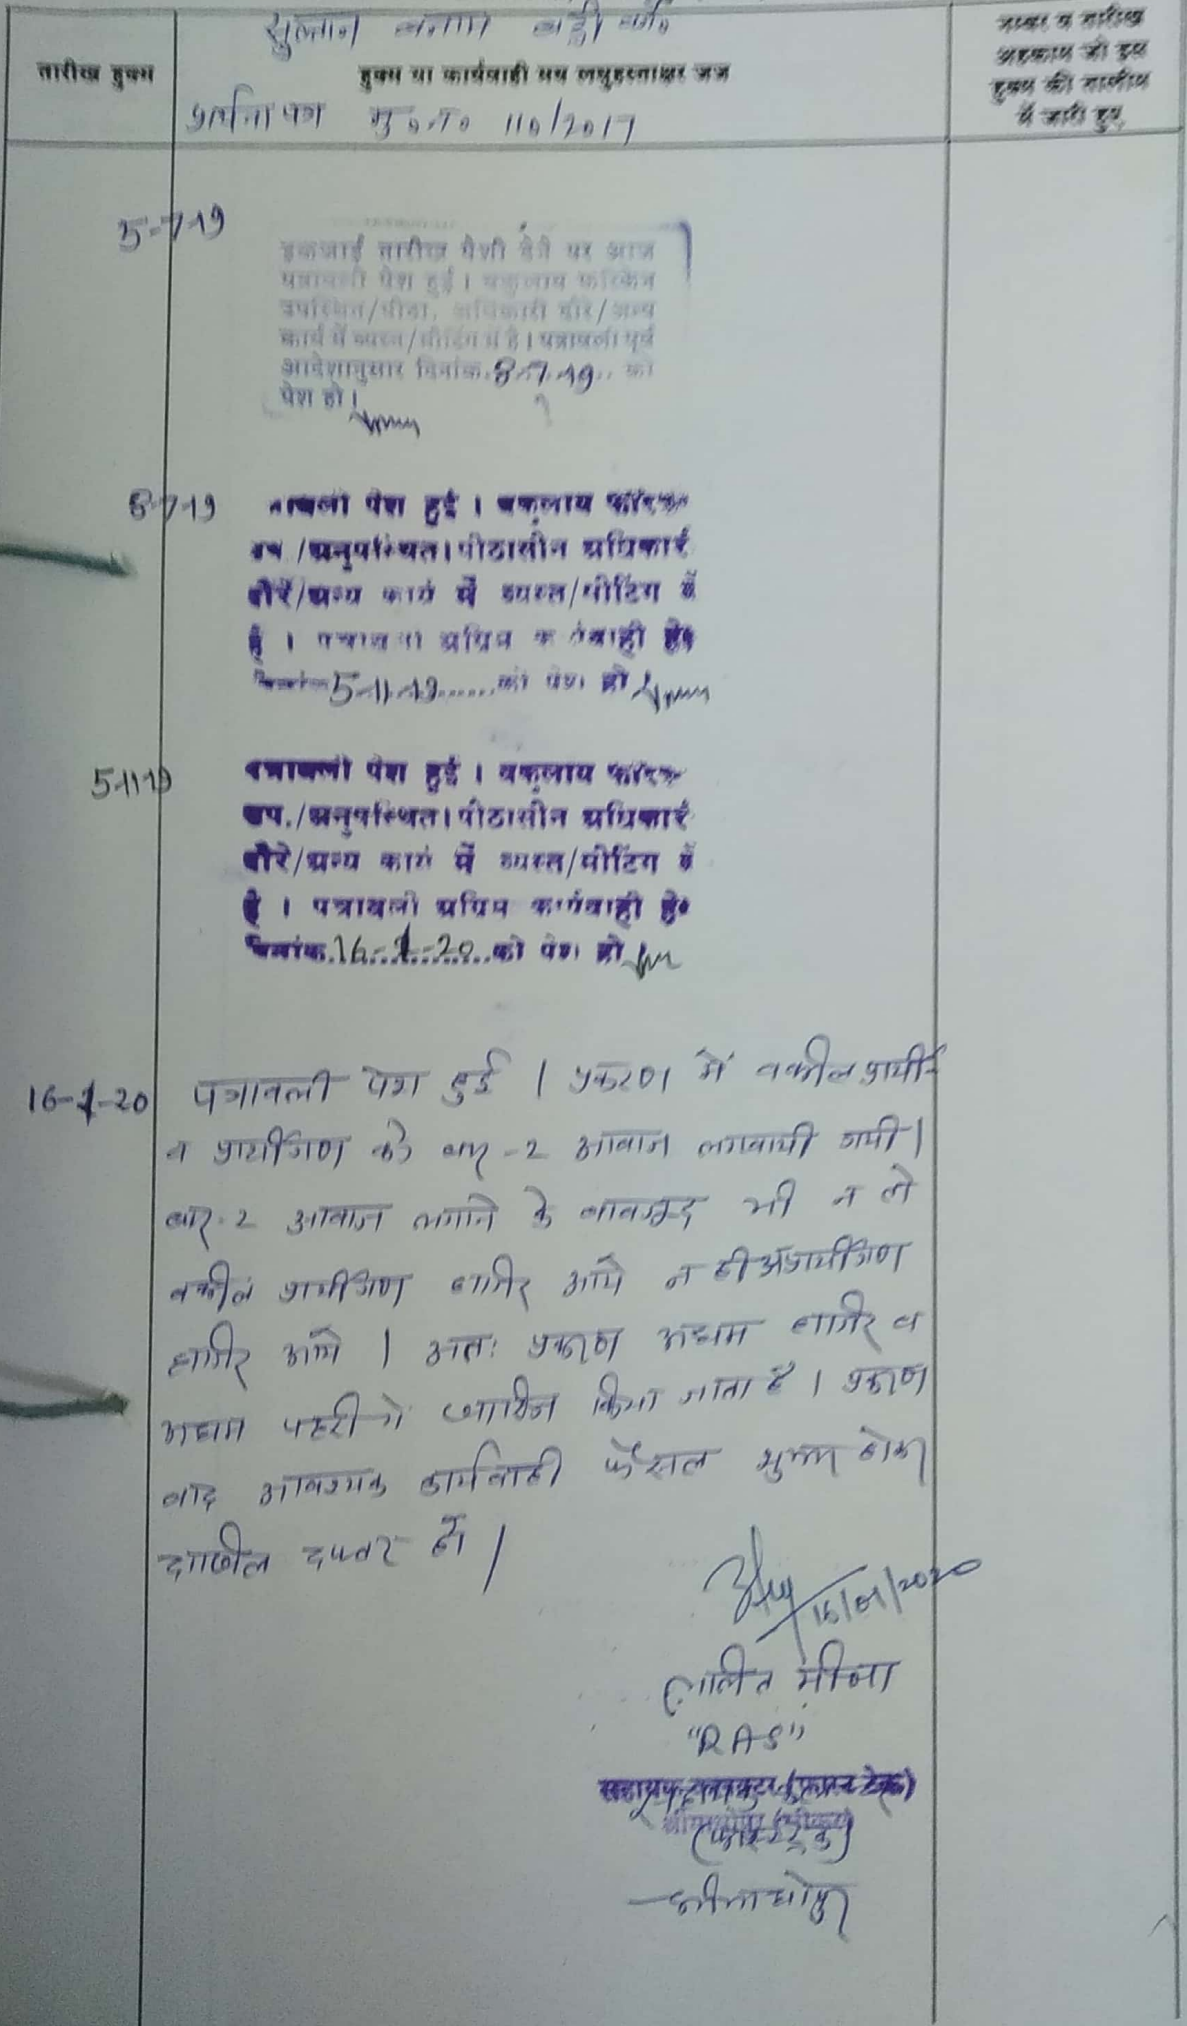 सुल्तान बनाम बद्री वगै०
तारीख हुक्म
हुक्म या कार्यवाही मय लघुहस्ताक्षर जज
नम्बर व तारीख
अहकाम जो इस
हुक्म की तामील
में जारी हुए
प्रार्थना पत्र मु०न० 110/2017
5-7-19
इकजाई तारीख पेशी देने पर आज
पत्रावली पेश हुई। वकुलाय फरिकेन
उपस्थित/पीठा. अधिकारी दौरे/अन्य
कार्य में व्यस्त/मीटिंग में है। पत्रावली पूर्व
आदेशानुसार दिनांक 8-7-19 को
पेश हो।
8-7-19
त्रावली पेश हुई। वकुलाय फरिक
उप /अनुपस्थित। पीठासीन अधिकारी
दौरे/अन्य कार्य में व्यस्त/मीटिंग में
है। पत्रावली अग्रिम कार्यवाही हेतु
दिनांक 5-11-19 ......को पेश हो
5-11-19
पत्रावली पेश हुई। वकुलाय फरिक
उप./अनुपस्थित। पीठासीन अधिकारी
दौरे/अन्य कार्य में व्यस्त/मीटिंग में
है। पत्रावली अग्रिम कार्यवाही हेतु
दिनांक 16-1-20 को पेश हो
16-1-20
पत्रावली पेश हुई। प्रकरण में वकील प्रार्थी
व प्रार्थीगण को बार-2 आवाज लगवायी गयी।
बार-2 आवाज लगाने के बावजूद भी न तो
वकील प्रार्थीगण हाजिर आये न ही अप्रार्थीगण
हाजिर आये। अतः प्रकरण अदम हाजिर व
अदम पैरवी में खारिज किया जाता है। प्रकरण
बाद आवश्यक कार्यवाही फैसल शुमार होकर
दाखिल दफ्तर हो।
16/01/2020
ललित मीना
"RAS"
सहायक कलक्टर (फास्ट ट्रेक)
(फास्ट ट्रेक)
श्रीमाधोपुर